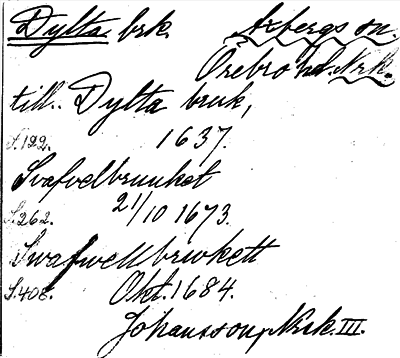 Dylta brk. Axbergs sn.
Örebro hd. Nrk.
till. Dylta bruk,
S.122. 1637.
Svafvelbruuket
S.262. 21/10 1673.
Swafwellbrwkett
S.408. Okt. 1684.
Johansson, Nrk. III.